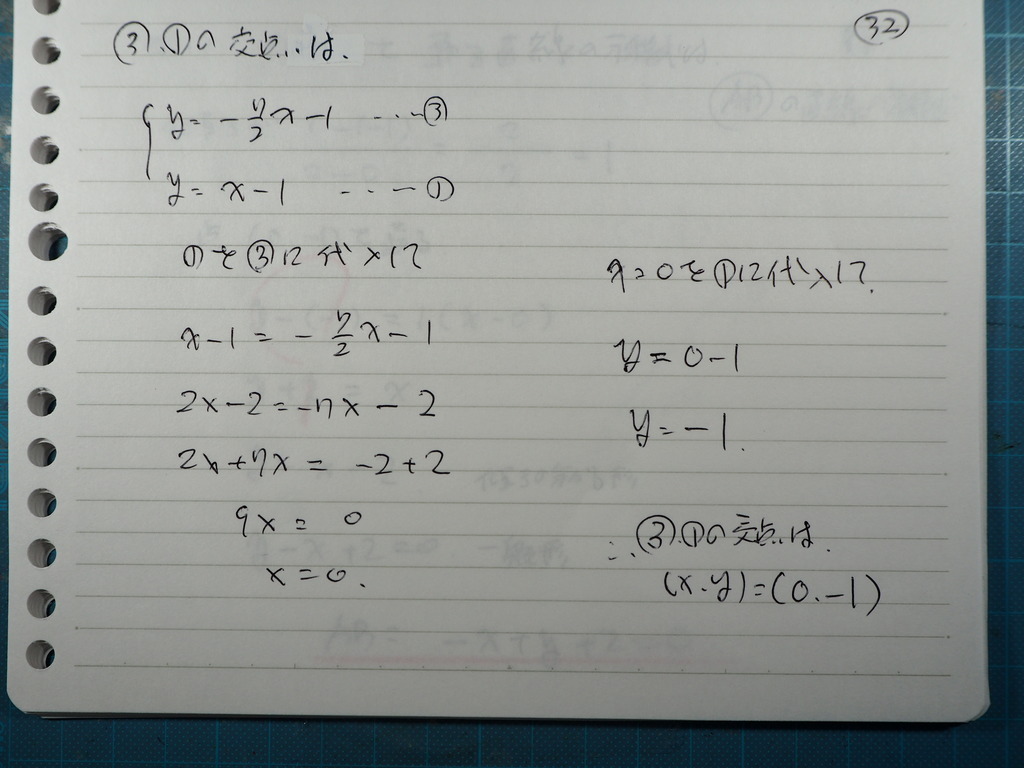 ㉜
③,①の交点は、
y = -7/2 x - 1 ...③
y = x - 1 ...①
①を③に代入して
x - 1 = -7/2 x - 1
2x - 2 = -7x - 2
2x + 7x = -2 + 2
9x = 0
x = 0.
x = 0を①に代入して.
y = 0 - 1
y = -1.
∴ ③,①の交点は、
(x.y) = (0.-1)